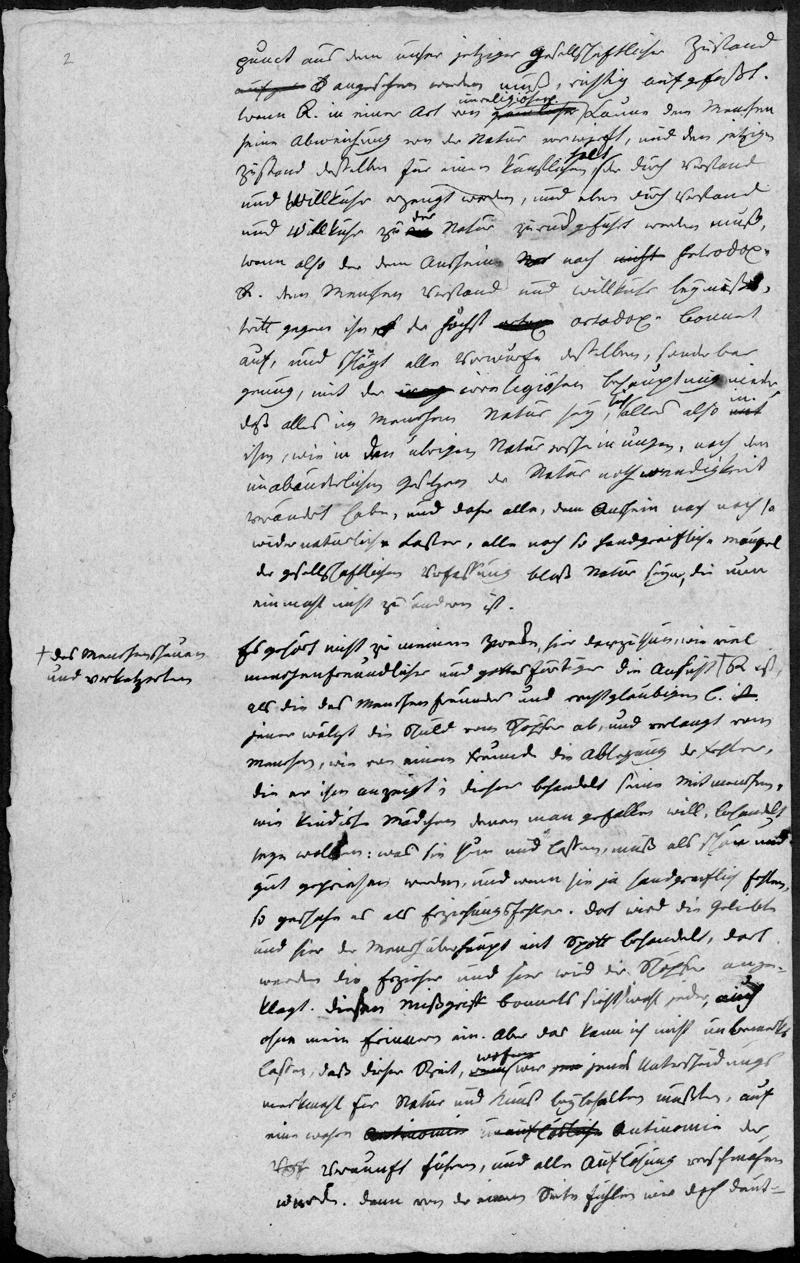 2
punct aus dem unser jetziger gesellschaftlicher Zustand
angesehen werden muß, richtig aufgefaßt.
wenn R. in einer Art von irreligiöser Laune dem Menschen
seine Abweichung von der Natur vorwirft, und den jetzigen
Zustand desselben für einen künstlichen hält, der durch Verstand
und Willkühr erzeugt worden, und eben durch Verstand
und Willkühr zu der Natur zurückgeführt werden muß,
wenn also der dem Anschein nach heterodoxe
R. dem Menschen Verstand und Willkühr beymißt,
tritt gegen ihn der höchst ortodoxe Bonnet
auf, und schlägt alle Vorwürfe desselben, sonderbar
genung, mit der irreligiösen Behauptung nieder
daß alles im Menschen Natur sey, sich alles also in
ihm, wie in den übrigen Naturerscheinungen, nach den
unabänderlichen Gesetzen der Naturnothwendigkeit
verändert habe, und daher alle, dem Anschein nach noch so
widernatürliche Laster, alle noch so handgreifliche Mängel
der gesellschaftlichen Verfassung bloß Natur seyn, die nun
einmahl nicht zu ändern ist.
Es gehört nicht zu meinem Zweck, hier darzuthun, wie viel
† des Menschenscheuen
und verketzerten
menschenfreundlicher und gottesfürtiger die Ansicht † R ist,
als die des Menschenfreundes und rechtgläubigen B. ist.
jener wälzt die Schuld vom Schöpfer ab, und verlangt vom
Menschen, wie von einem Freunde die Ablegung der Fehler,
die er ihm anzeigt; dieser behandelt seine Mitmenschen,
wie kindische Mädchen denen man gefallen will, behandelt
seyn wollen: was sie thun und lassen, muß als schön und
gut gepriesen werden, und wenn sie ja handgreiflich fehlen,
so geschah es als Erziehungsfehler. Dort wird die Geliebte
und hier der Mensch überhaupt mit Spott behandelt, dort
werden die Erzieher und hier wird der Schöpfer ange-
klagt. Diesen Mißgriff Bonnets sieht wohl jeder, auch
ohne mein Erinnern ein. Aber das kann ich nicht unbemerkt
lassen, daß dieser Streit, wofern wir jenes Unterscheidungs
merkmahl für Natur und Kunst beybehalten müßten, auf
eine wahre Antinomie der
Vernunft führen, und alle Auflösung verschmähen
würde. Denn von der einen Seite fühlen wir doch deut-